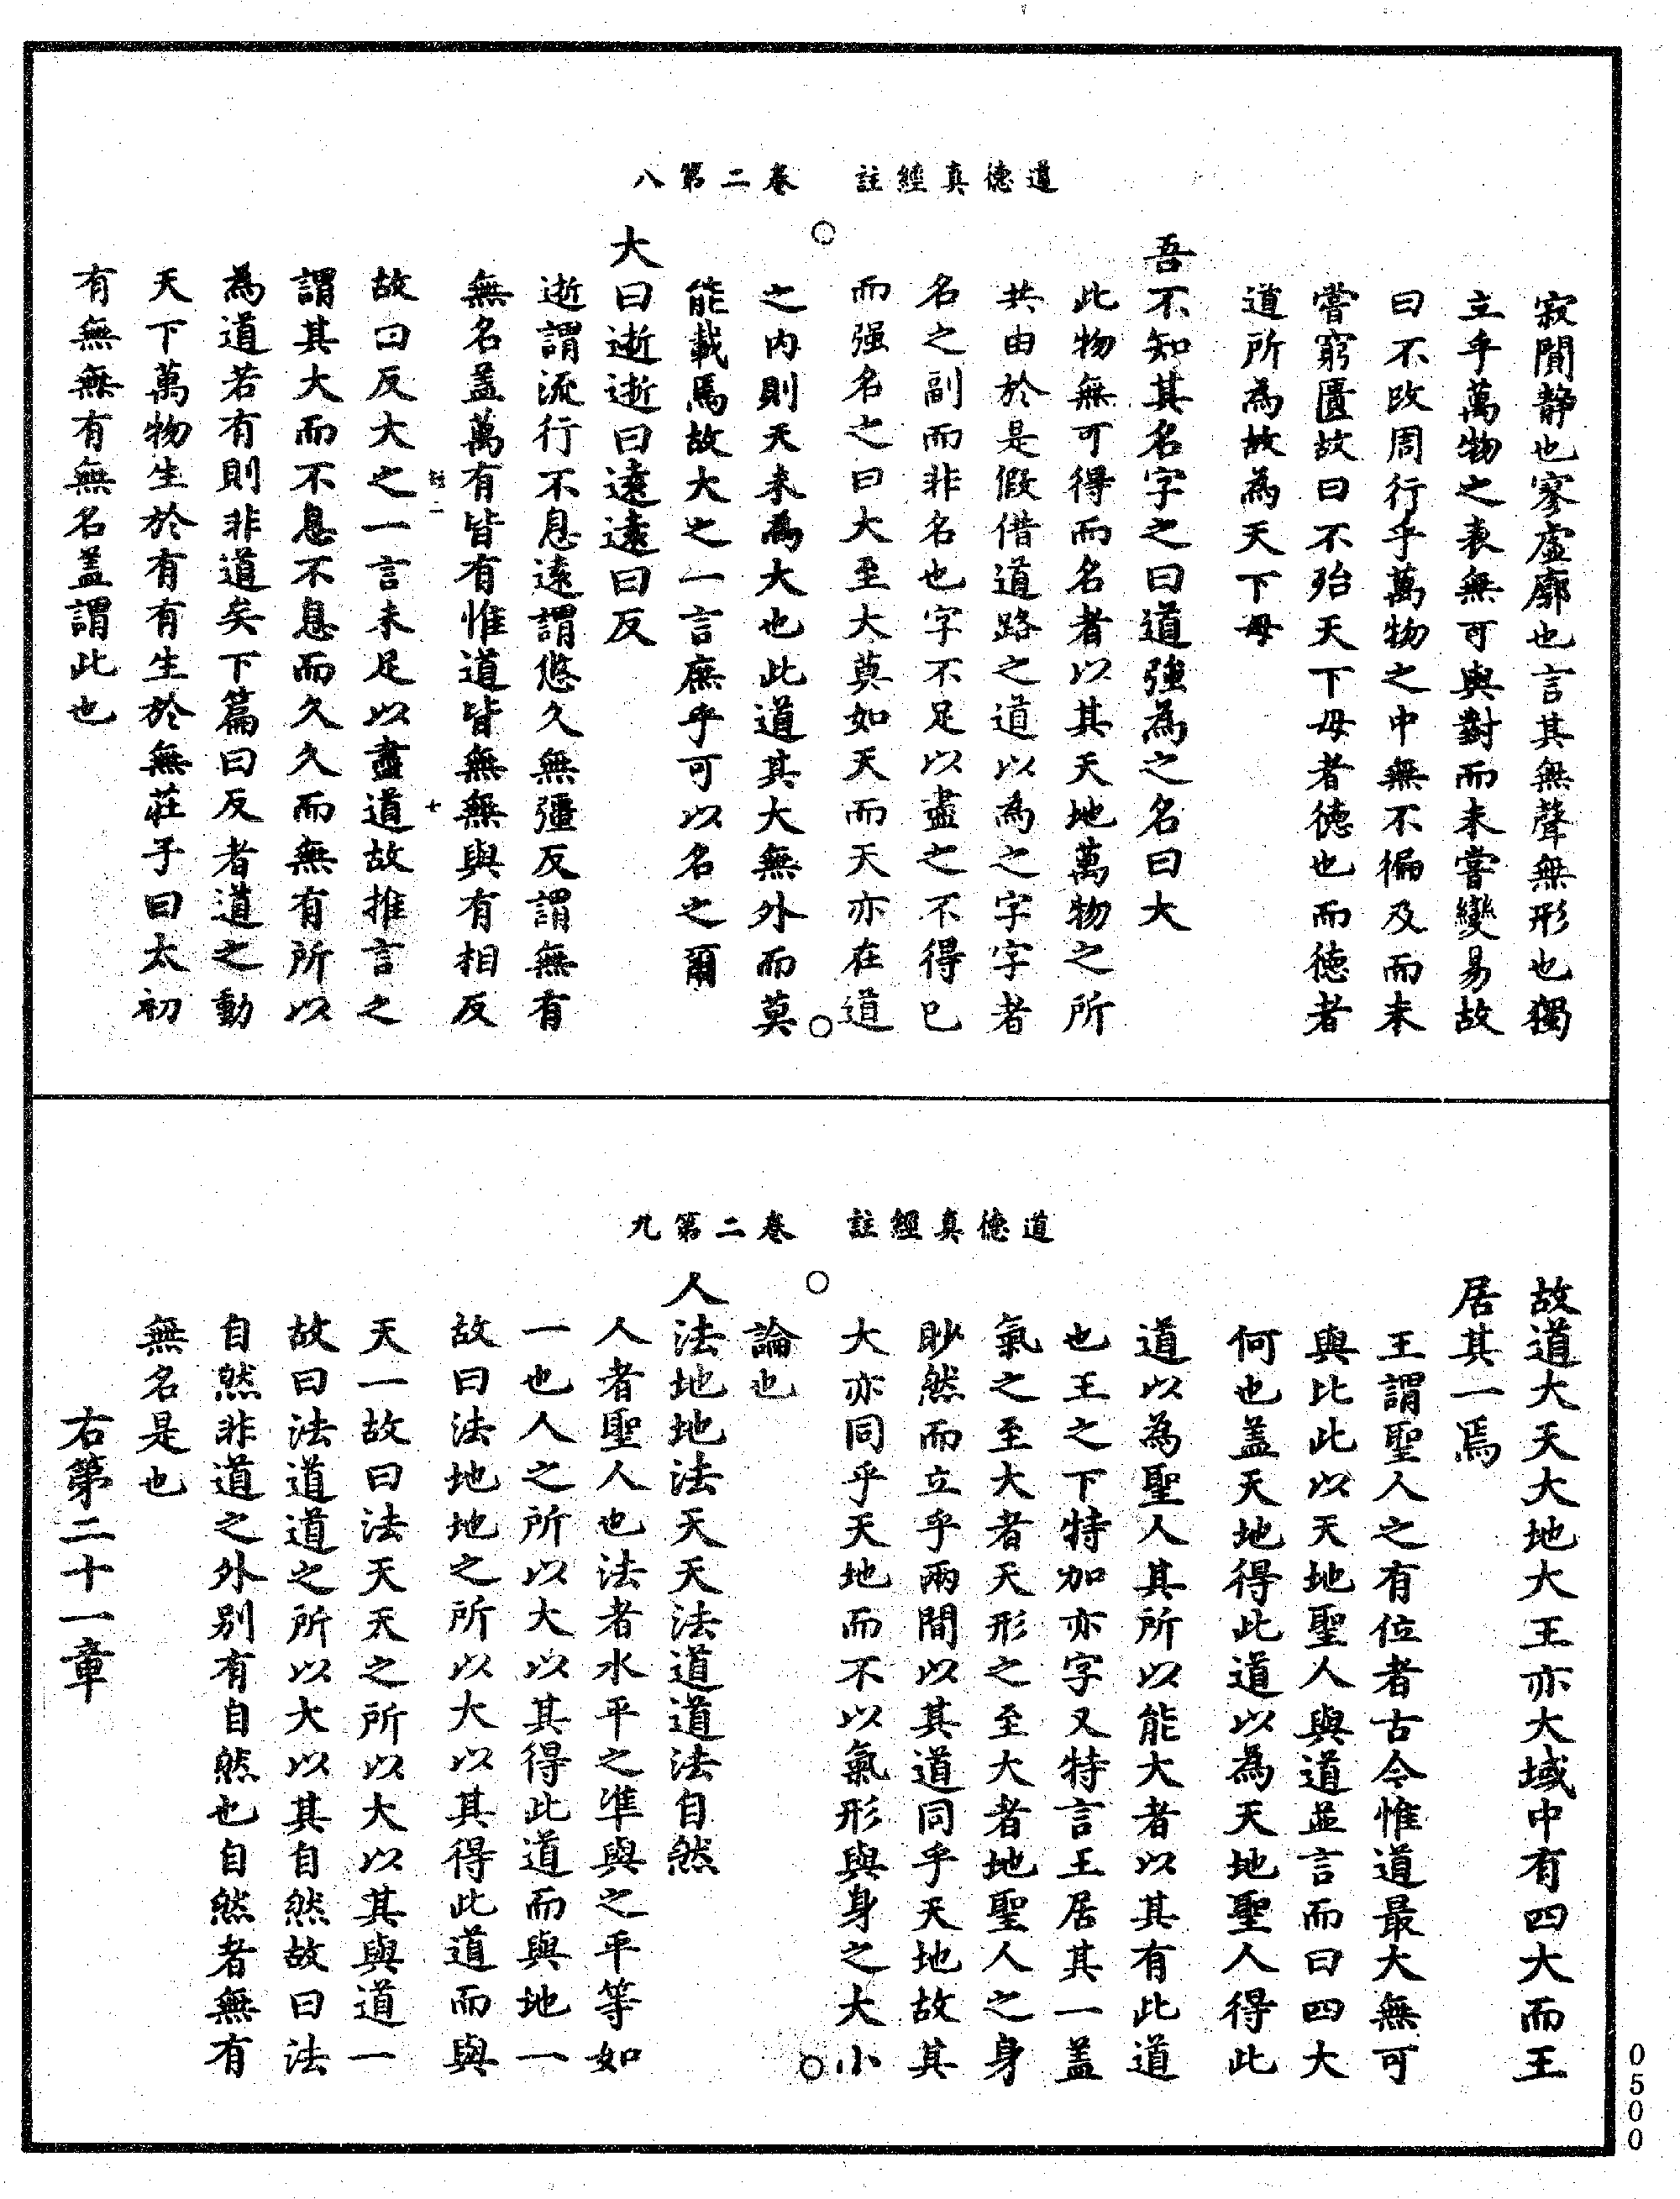 道德真經註　卷二第八
寂閴靜也寥虛廓也言其無聲無形也獨
立乎萬物之表無可與對而未嘗變易故
曰不改周行乎萬物之中無不徧及而未
嘗窮匱故曰不殆天下母者德也而德者
道所為故為天下母
吾不知其名字之曰道強為之名曰大
此物無可得而名者以其天地萬物之所
共由於是假借道路之道以為之字字者
名之副而非名也字不足以盡之不得已
而强名之曰大至大莫如天而天亦在道
之内則天未為大也此道其大無外而莫
能載焉故大之一言庶乎可以名之爾
大曰逝逝曰遠遠曰反
逝謂流行不息遠謂悠久無彊反謂無有
無名盖萬有皆有惟道皆無無與有相反
故曰反大之一言未足以盡道故推言之
謂其大而不息不息而久久而無有所以
為道若有有則非道矣下篇曰反者道之動
天下萬物生於有有生於無莊子曰太初
有無無有無名盖謂此也
道德真經註　卷二第九
故道大天大地大王亦大域中有四大而王
居其一焉
王謂聖人之有位者古今惟道最大無可
與比此以天地聖人與道並言而曰四大
何也盖天地得此道以為天地聖人得此
道以為聖人其所以能大者以其有此道
也王之下特加亦字又特言王居其一盖
氣之至大者天形之至大者地聖人之身
眇然而立乎兩間以其道同乎天地故其
大亦同乎天地而不以氣形與身之大小
論也
人法地地法天天法道道法自然
人者聖人也法者水平之準與之平等如
一也人之所以大以其得此道而與地一
故曰法地地之所以大以其得此道而與
天一故曰法天天之所以大以其與道一
故曰法道道之所以大以其自然故曰法
自然非道之外别有自然也自然者無有
無名是也
右第二十一章
0500